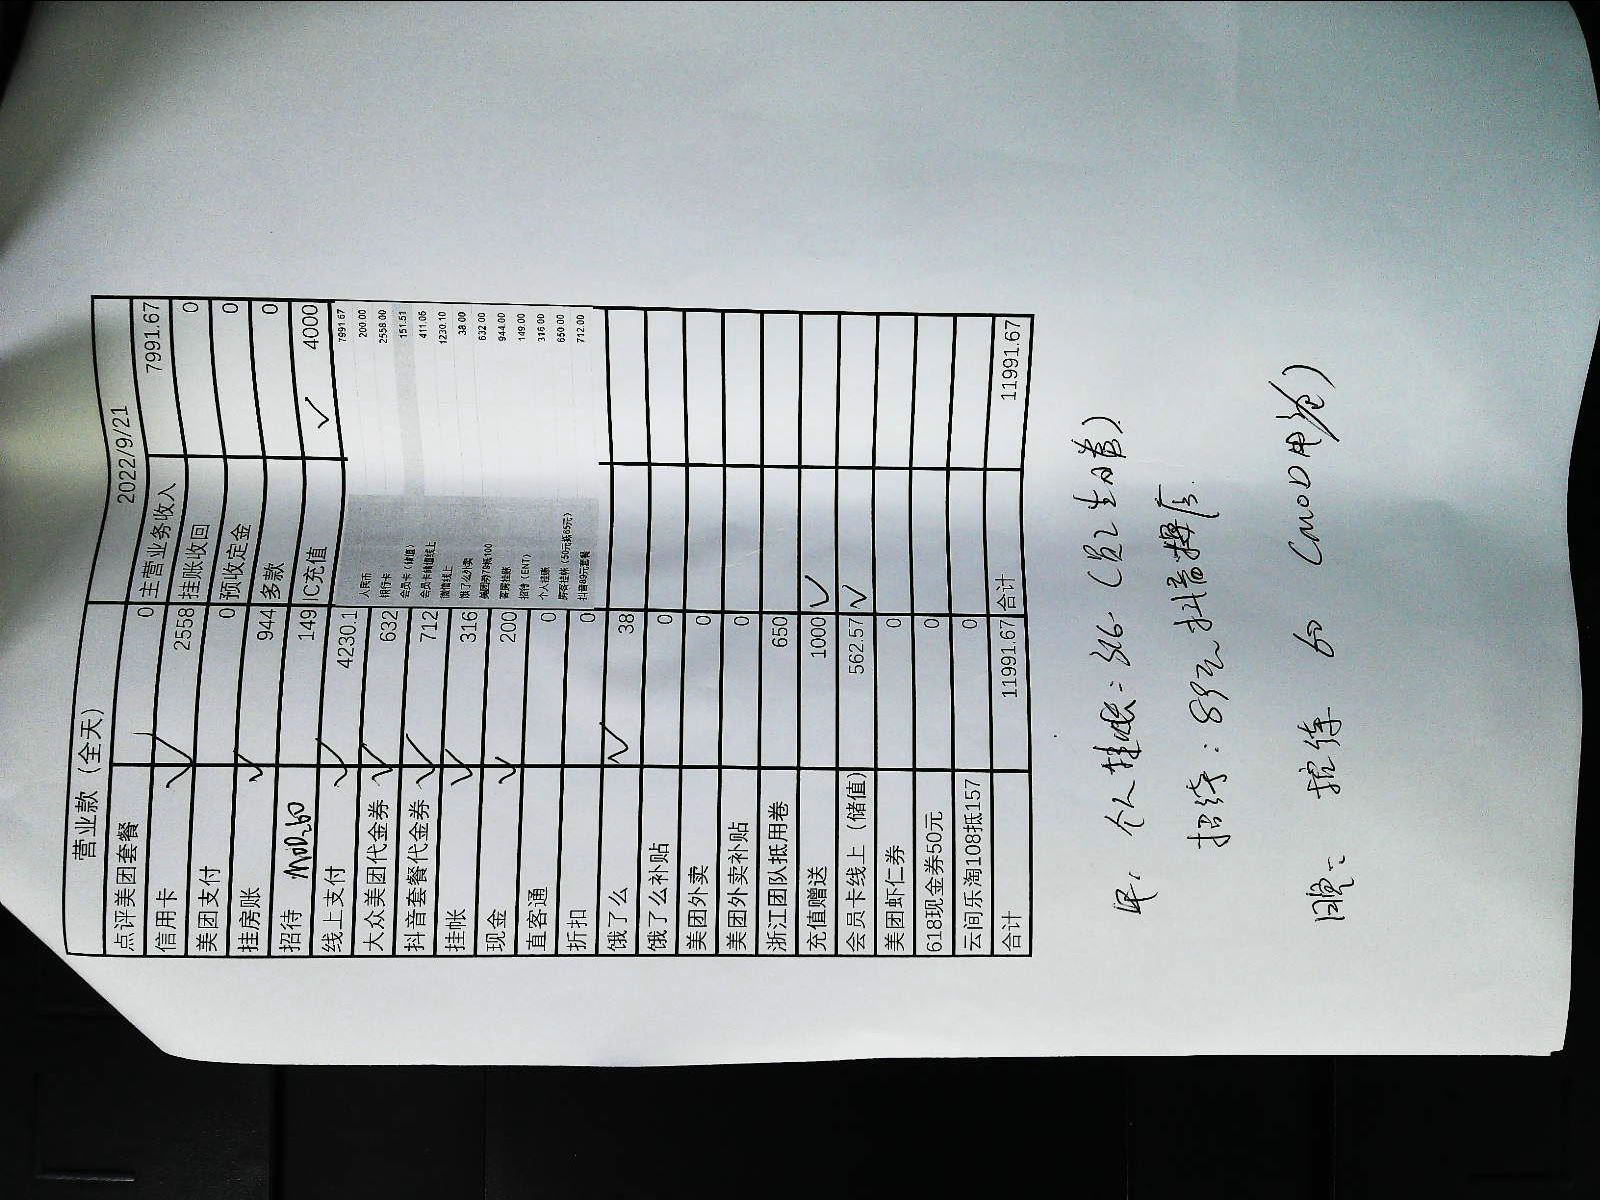 营业款（全天） 2022/9/21
点评美团套餐 0 主营业务收入 7991.67
信用卡 2558 挂账收回 0
美团支付 0 预收定金 0
挂房账 944 多款 0
招待 149 IC充值 4000
线上支付 4230.1
大众美团代金券 632
抖音套餐代金券 712
挂帐 316
现金 200
直客通 0
折扣 0
饿了么 38
饿了么补贴 0
美团外卖 0
美团外卖补贴 0
浙江团队抵用卷 650
充值赠送 1000
会员卡线上（储值） 562.57
美团虾仁券 0
618现金券50元 0
云间乐淘108抵157 0
合计 11991.67 合计 11991.67
7991.67
人民币 200.00
银行卡 2558.00
会员卡（储值） 151.51
会员卡储值线上 411.06
微信线上 1230.10
饿了么外卖 38.00
美团券78抵100 632.00
客房挂账 944.00
招待（ENT） 149.00
个人挂账 316.00
650.00
抖音89元套餐 712.00
个人挂账：316-（员工生日蛋）
招待：89元抖音
晚： 招待 60